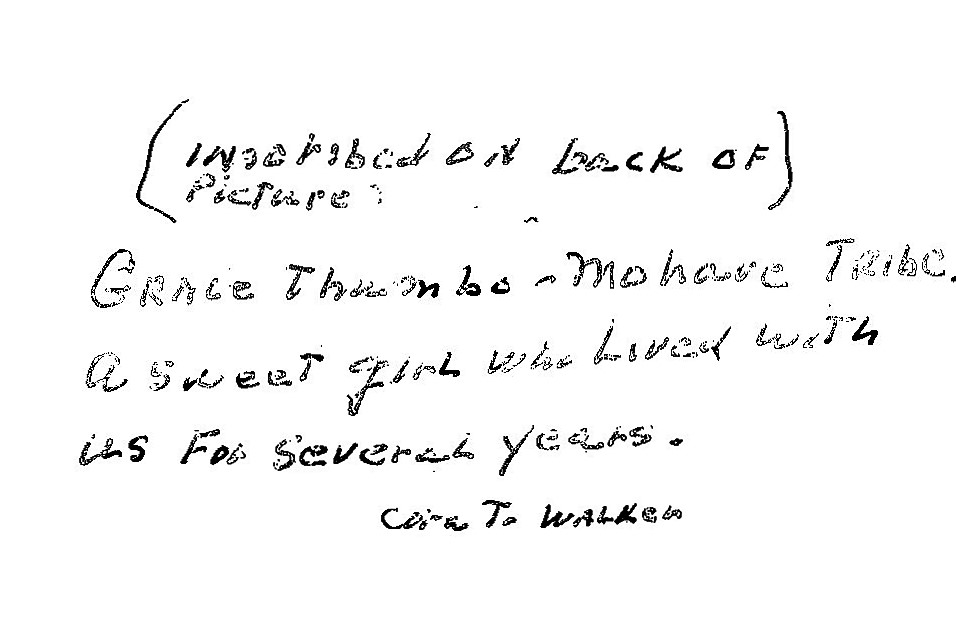 (inscribed on back of
Picture)
Grace Thumbo - Mohave Tribe.
A sweet girl who Lived with
us For several years.
Cora T. Walker